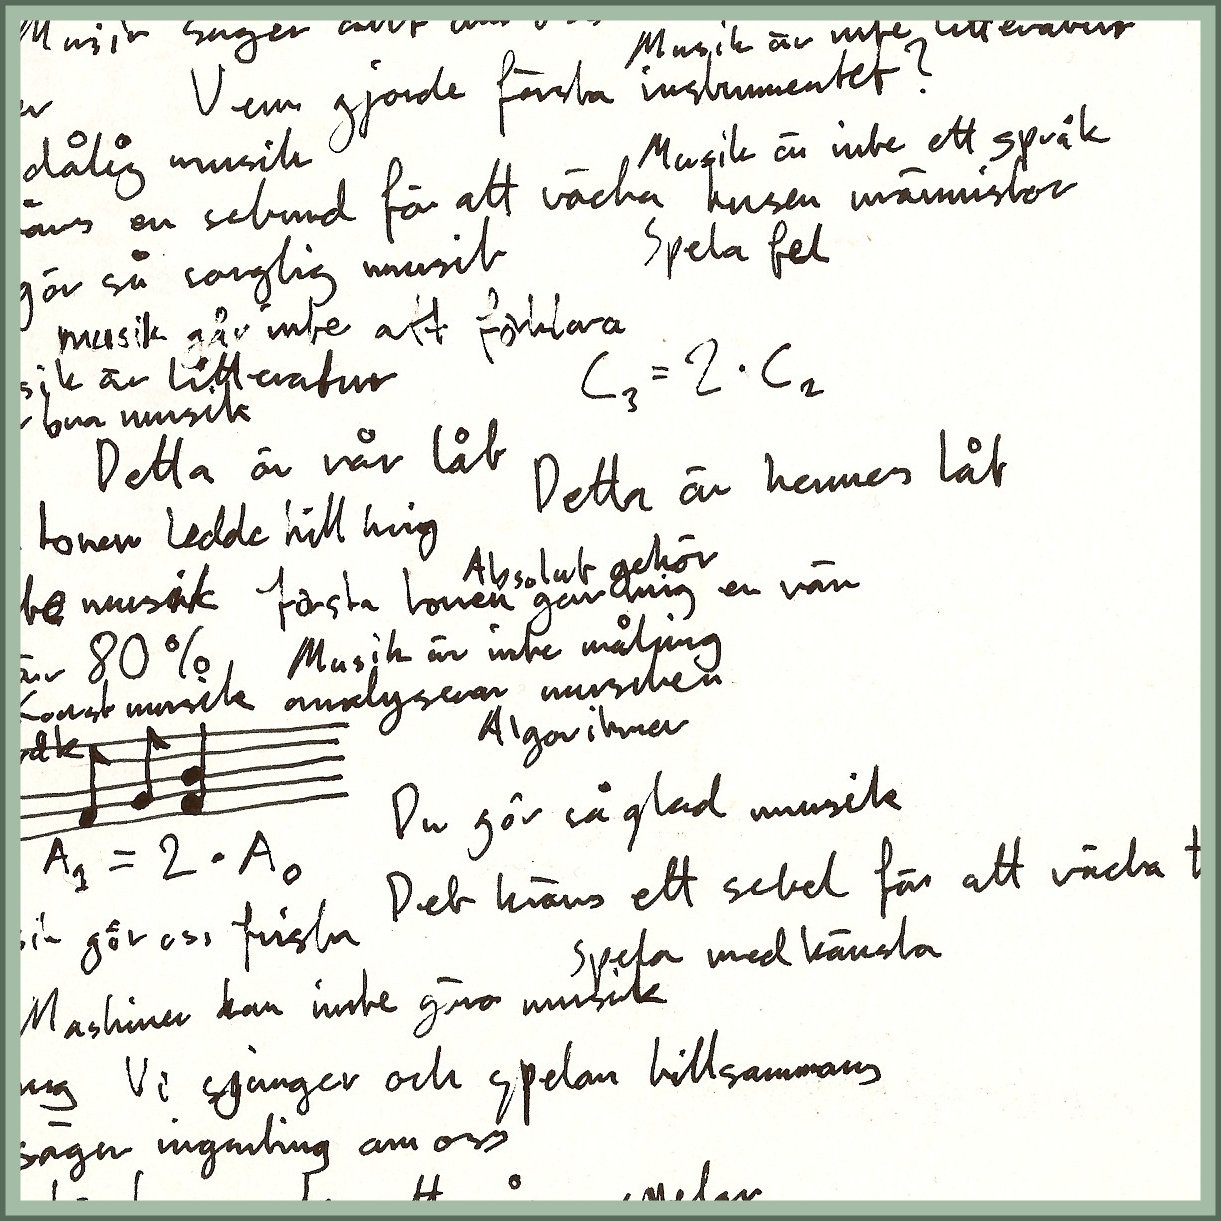 Musik säger allt om oss
Musik är inte litteratur
Vem gjorde första instrumentet?
dålig musik
Musik är inte ett språk
en sekund för att väcka tusen människor
Spela fel
gör så sorglig musik
musik går inte att förklara
C₃ = 2 · C₂
är litteratur
bra musik
Detta är vår låt
Detta är hennes låt
tonen ledde till mig
Absolut gehör
musik
första tonen gav mig en vän
är 80%
Musik är inte målning
Konstmusik analyserar nuschen
Algoritmer
Du gör så glad musik
A₁ = 2 · A₀
Det krävs ett sekel för att väcka t
gör oss friska
Spela med känsla
Maskiner kan inte göra musik
Vi sjunger och spelar tillsammans
säger ingenting om oss